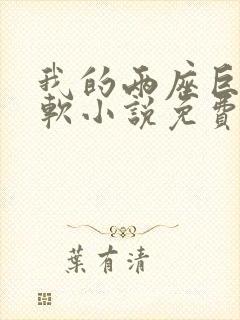 我的兩座巨
軟小說免費
葉有清